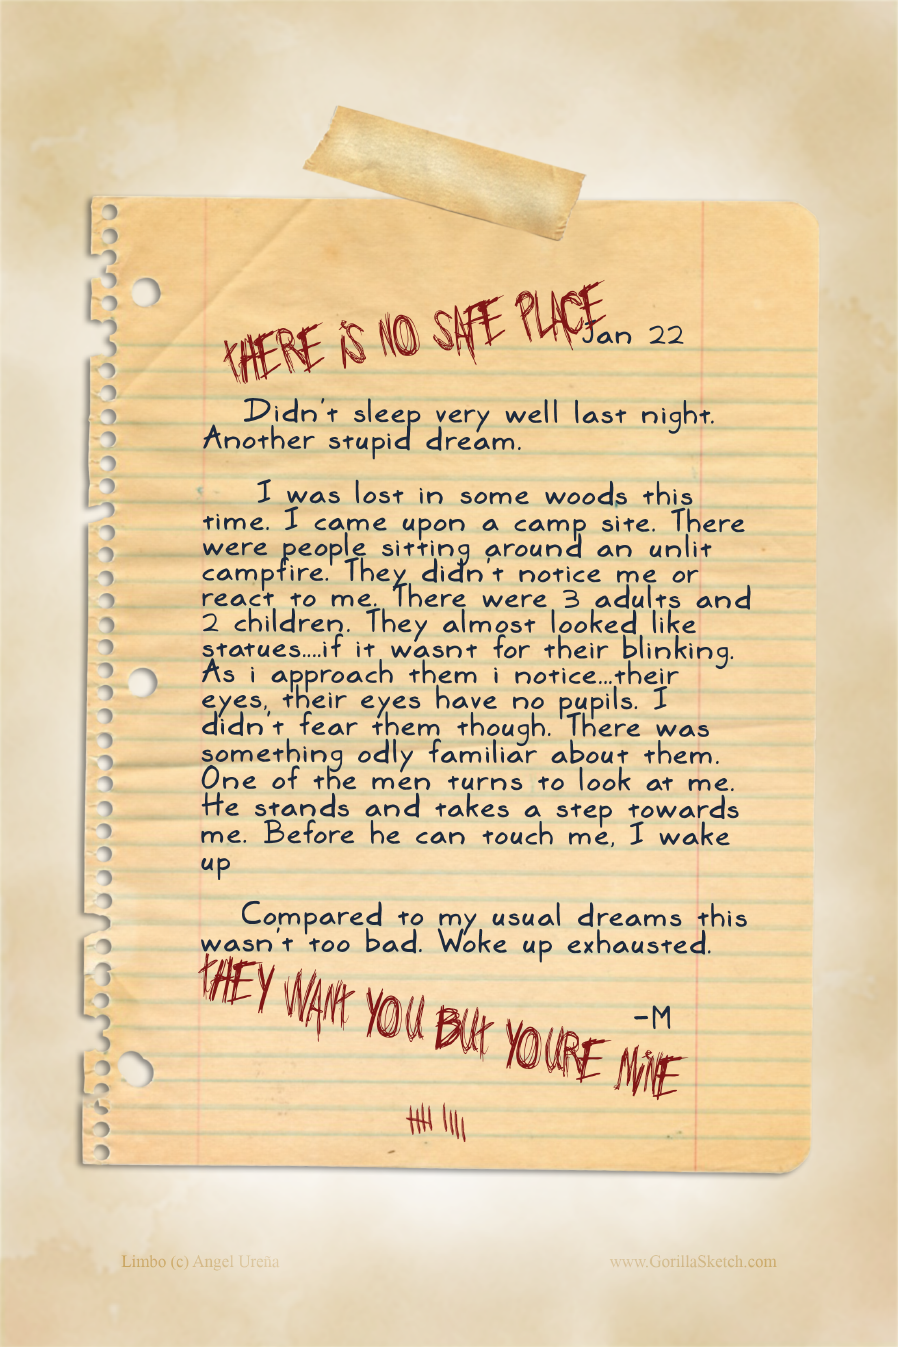 THERE IS NO SAFE PLACE
Jan 22
Didn't sleep very well last night.
Another stupid dream.
I was lost in some woods this
time. I came upon a camp site. There
were people sitting around an unlit
campfire. They didn't notice me or
react to me. There were 3 adults and
2 children. They almost looked like
statues....if it wasnt for their blinking.
As i approach them i notice...their
eyes, their eyes have no pupils. I
didn't fear them though. There was
something odly familiar about them.
One of the men turns to look at me.
He stands and takes a step towards
me. Before he can touch me, I wake
up
Compared to my usual dreams this
wasn't too bad. Woke up exhausted.
-M
THEY WANT YOU BUT YOURE MINE
Limbo (c) Angel Ureña
www.GorillaSketch.com